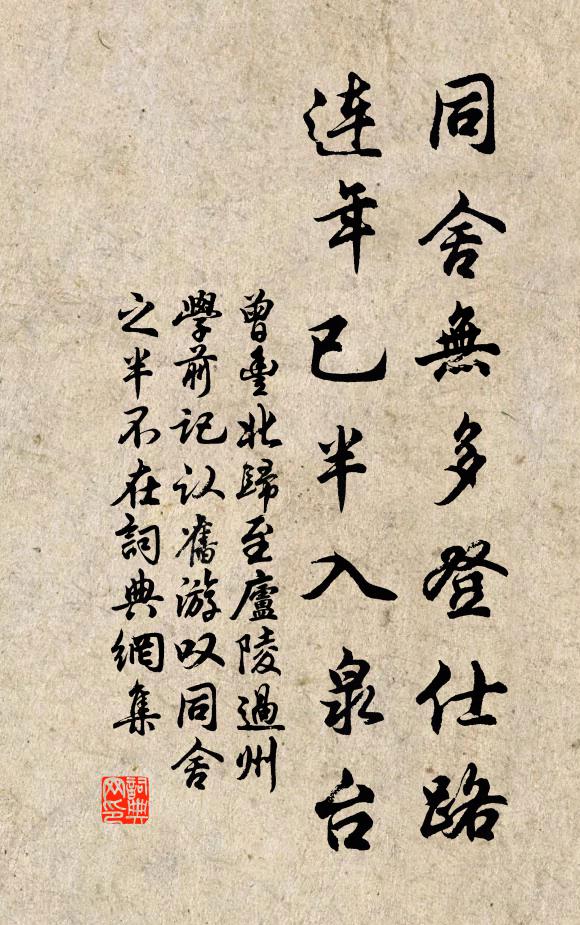 同舍無多登仕路
連年已半入泉台
曾豐北歸至廬陵過州
學前記认舊游叹同舍
之半不在詞典網集
詞典網印